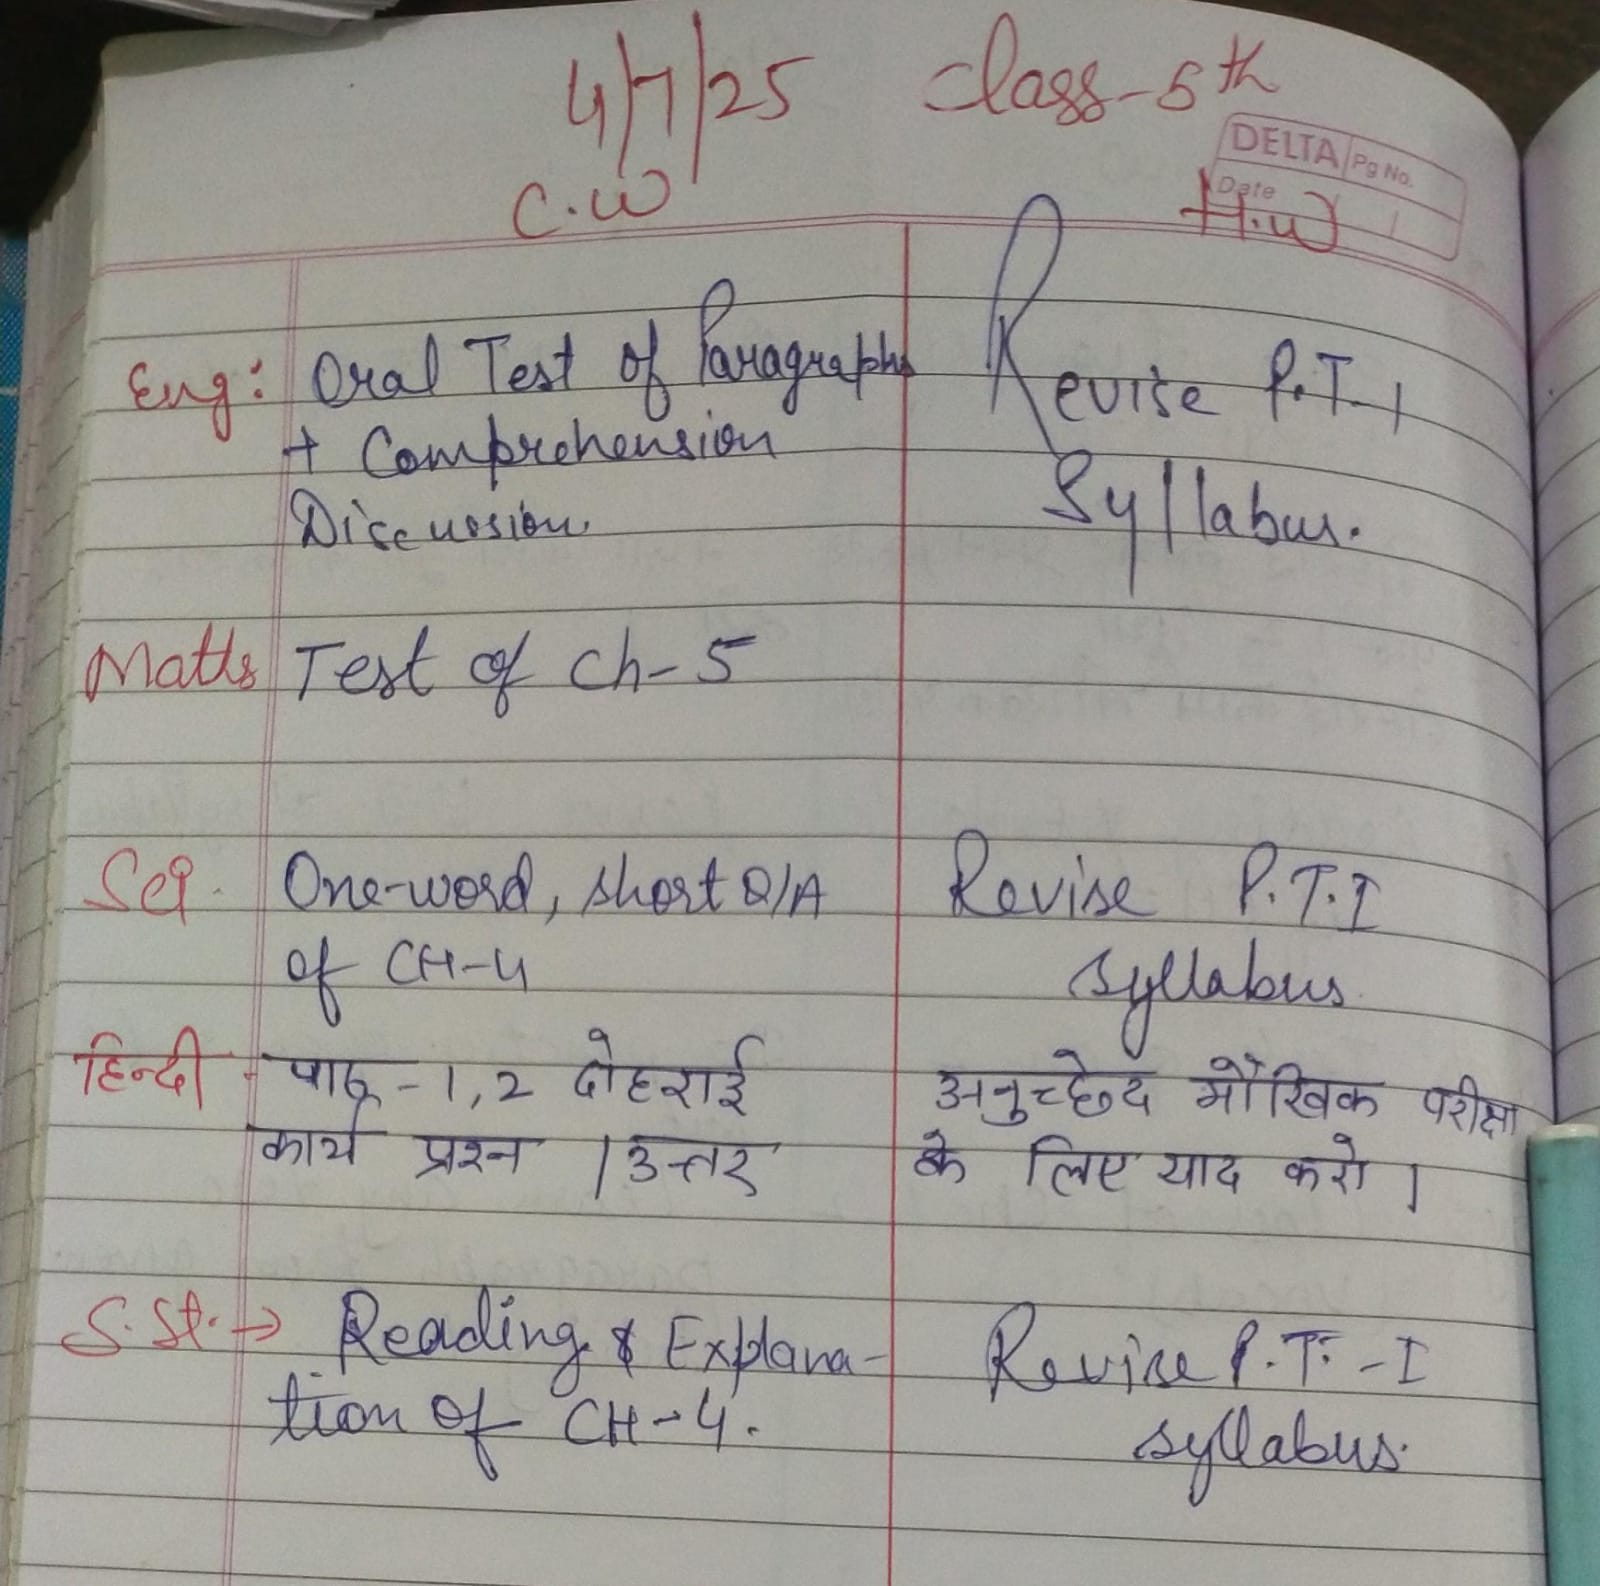 4/7/25 Class-5th
DELTA Pg No.
Date
C.W H.W
Eng: Oral Test of Paragraphs Revise P.T-I
+ Comprehension Syllabus.
Discussion.
Maths Test of Ch-5
Sci. One-word, short Q/A Revise P.T.I
of CH-4 syllabus.
हिन्दी - पाठ-1,2 दोहराई अनुच्छेद मौखिक परीक्षा
कार्य प्रश्न / उत्तर के लिए याद करो।
S.St. → Reading & Explana- Revise P.T.-I
tion of CH-4. syllabus.